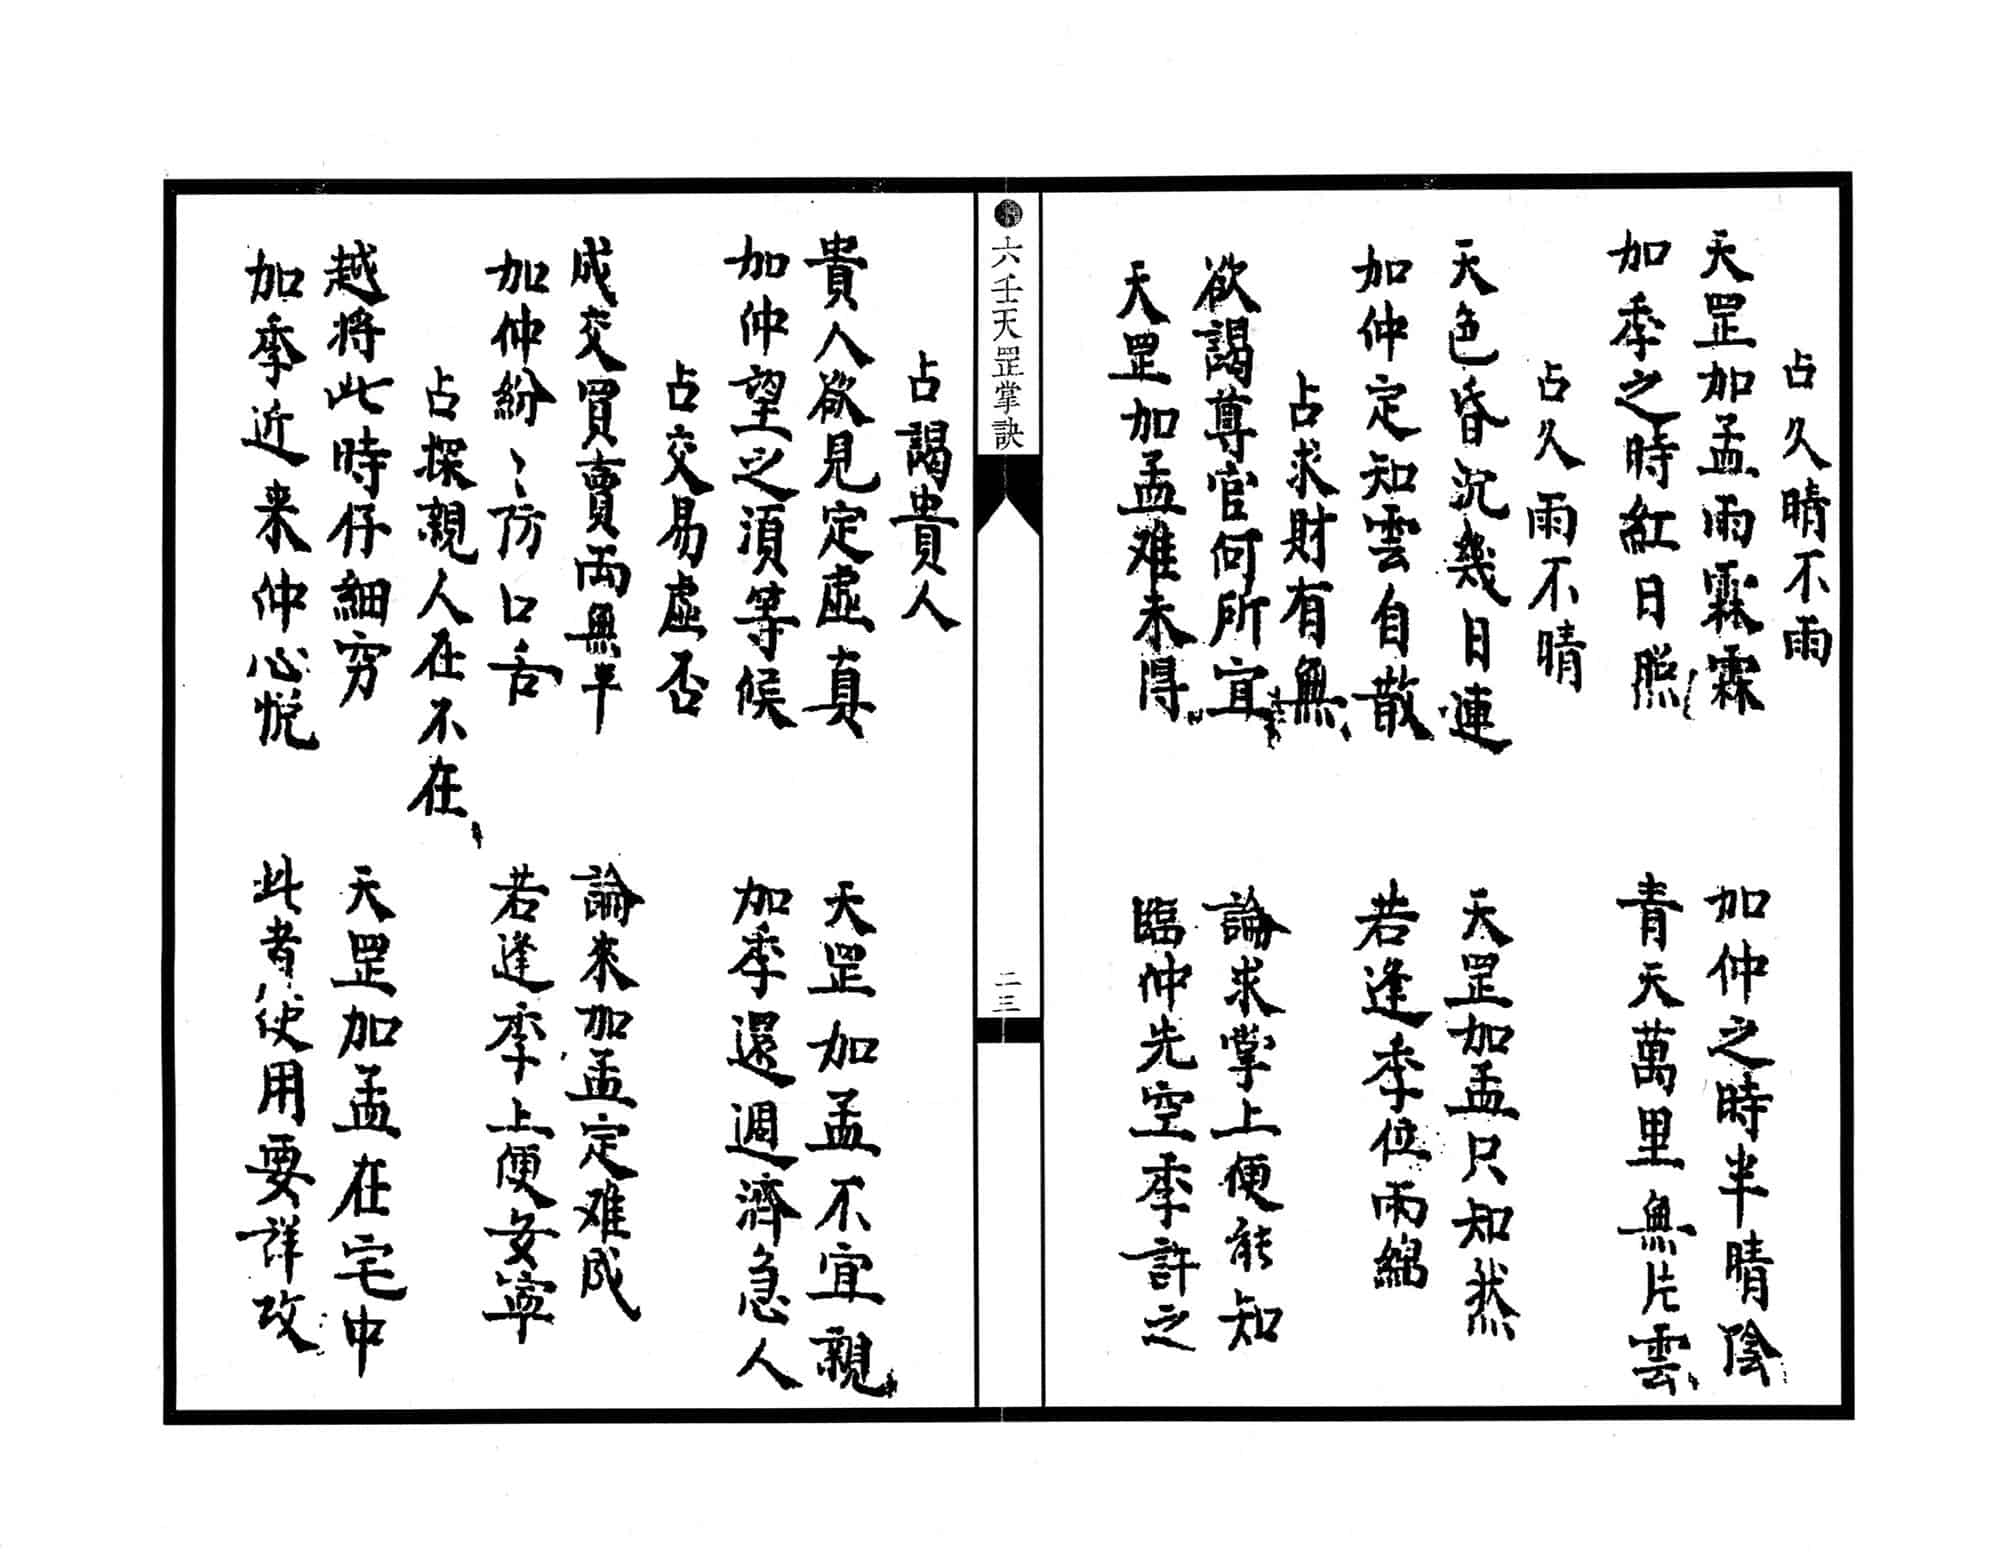 占久晴不雨
天罡加孟雨霖霖　加仲之時半晴陰
加季之時紅日照　青天萬里無片雲
占久雨不晴
天色昏沉幾日連　天罡加孟只知然
加仲定知雲自散　若逢季位雨綿
占求財有無
欲謁尊官何所宜　論求掌上便能知
天罡加孟难未得　臨仲先空季許之
六壬天罡掌訣
二三
占謁貴人
貴人欲見定虛真　天罡加孟不宜親
加仲望之須等候　加季還週濟急人
占交易虛否
成交買賣両無平　論來加孟定难成
加仲紛〻防口舌　若逢季上便安寧
占探親人在不在
越將此時仔細穷　天罡加孟在宅中
加季近来仲心悦　此者使用要詳攻